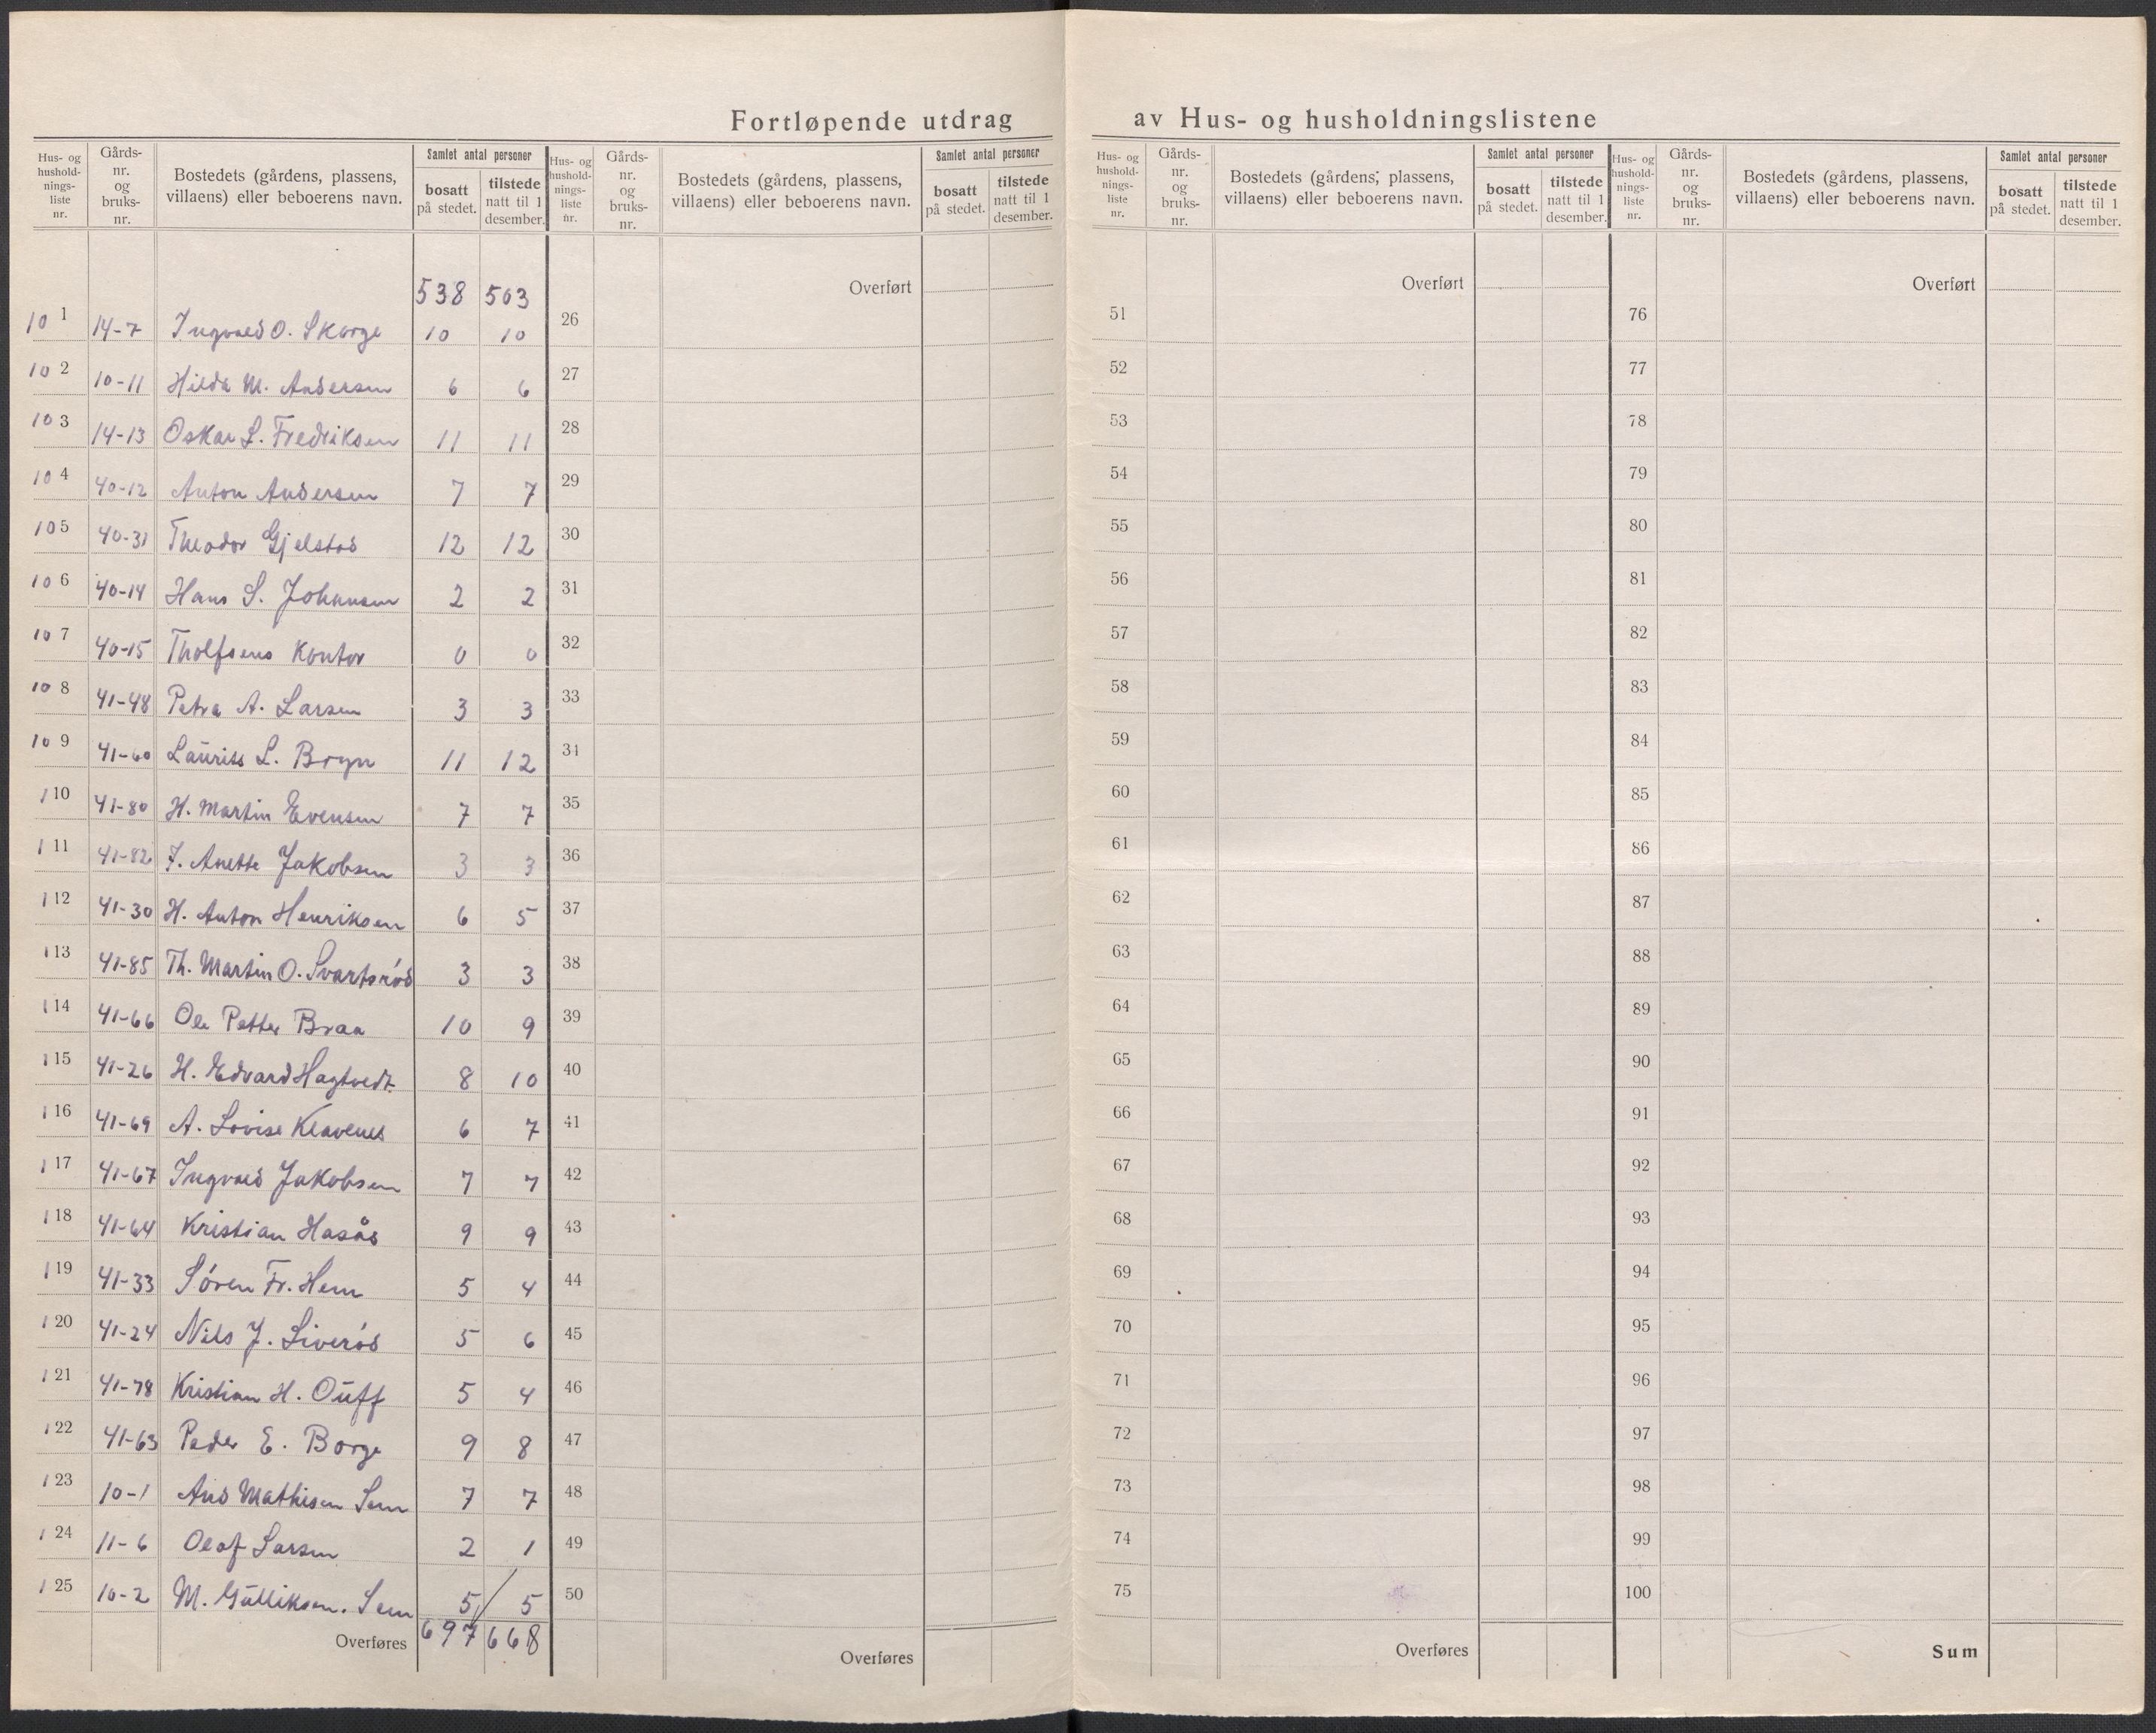 Fortløpende utdrag av Hus- og husholdningslistene
Hus- og hushold-nings-liste nr. Gårds-nr. og bruks-nr. Bostedets (gårdens, plassens, villaens) eller beboerens navn. Samlet antal personer bosatt på stedet. tilstede natt til 1 desember.
Hus- og hushold-nings-liste nr. Gårds-nr. og bruks-nr. Bostedets (gårdens, plassens, villaens) eller beboerens navn. Samlet antal personer bosatt på stedet. tilstede natt til 1 desember.
Hus- og hushold-nings-liste nr. Gårds-nr. og bruks-nr. Bostedets (gårdens, plassens, villaens) eller beboerens navn. Samlet antal personer bosatt på stedet. tilstede natt til 1 desember.
Hus- og hushold-nings-liste nr. Gårds-nr. og bruks-nr. Bostedets (gårdens, plassens, villaens) eller beboerens navn. Samlet antal personer bosatt på stedet. tilstede natt til 1 desember.
538 503
101 14-7 Ingvald O. Skorge 10 10
102 10-11 Hilda M. Andersen 6 6
103 14-13 Oskar L. Fredriksen 11 11
104 40-12 Anton Andersen 7 7
105 40-31 Theodor Gjelstad 12 12
106 40-14 Hans S. Johansen 2 2
107 40-15 Tholfsens Kontor 0 0
108 41-48 Petra A. Larsen 3 3
109 41-60 Laurits L. Bryn 11 12
110 41-80 H. Martin Evensen 7 7
111 41-82 J. Anette Jakobsen 3 3
112 41-30 H. Anton Henriksen 6 5
113 41-85 Th. Martin O. Svartsrød 3 3
114 41-66 Ole Petter Braa 10 9
115 41-26 H. Edvard Hagtvedt 8 10
116 41-69 A. Lovise Klavenes 6 7
117 41-67 Ingvald Jakobsen 7 7
118 41-64 Kristian Hasås 9 9
119 41-33 Søren Fr. Hem 5 4
120 41-24 Nils J. Liverød 5 6
121 41-78 Kristian H. Ouff 5 4
122 41-63 Peder E. Borge 9 8
123 10-1 And Mathisen Sem 7 7
124 11-6 Olaf Larsen 2 1
125 10-2 M. Gulliksen. Sem 5 5
Overføres 697 668
Overført
26
27
28
29
30
31
32
33
34
35
36
37
38
39
40
41
42
43
44
45
46
47
48
49
50
Overføres
Overført
51
52
53
54
55
56
57
58
59
60
61
62
63
64
65
66
67
68
69
70
71
72
73
74
75
Overføres
Overført
76
77
78
79
80
81
82
83
84
85
86
87
88
89
90
91
92
93
94
95
96
97
98
99
100
Sum